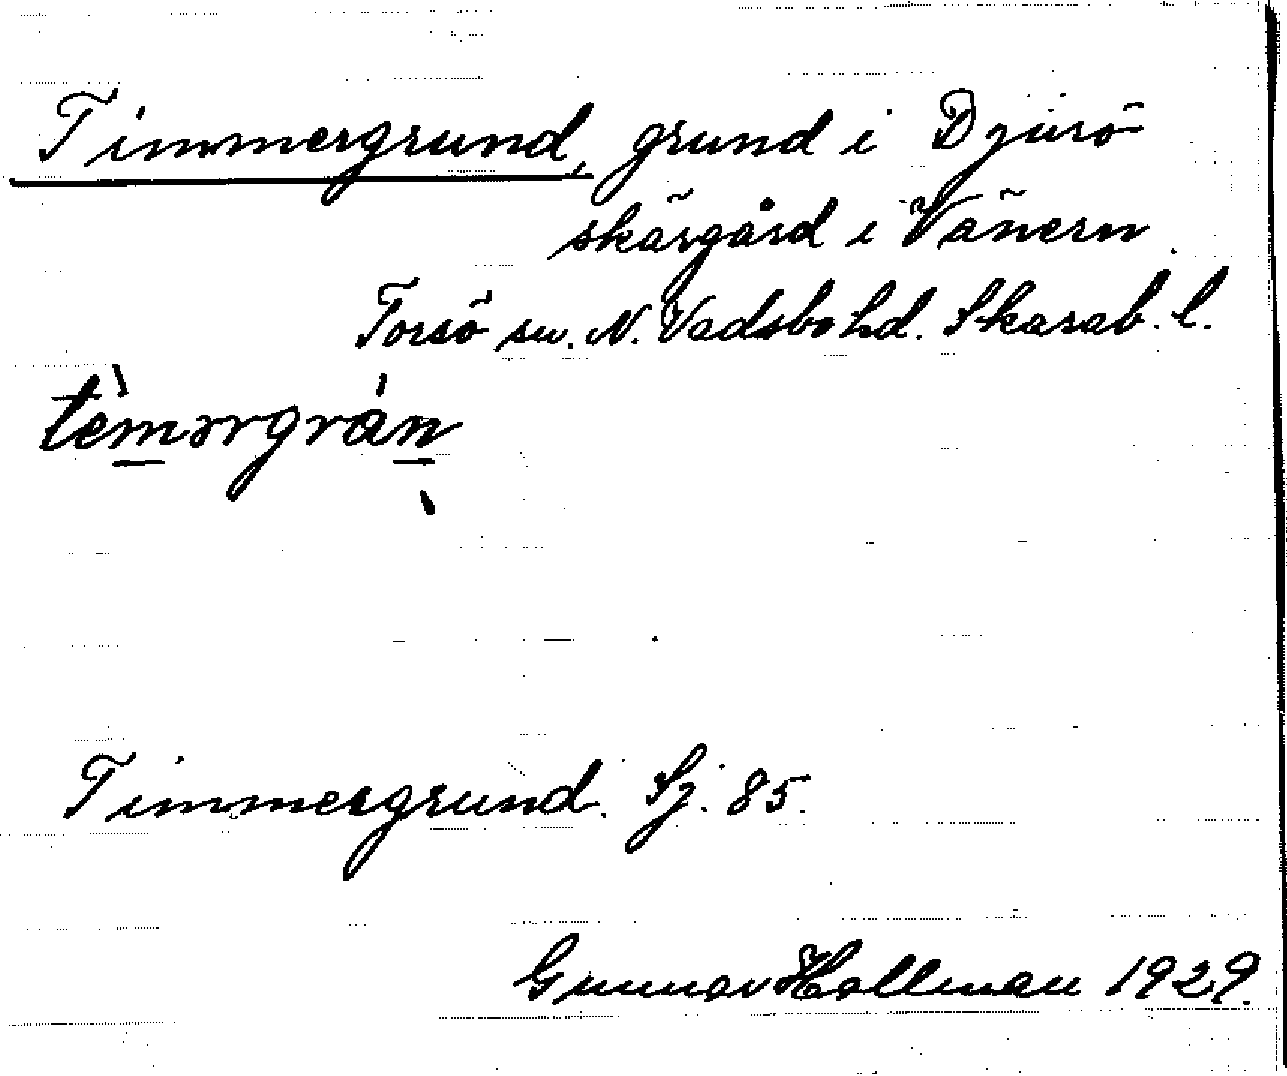 Timmergrund, grund i Djurö
skärgård i Vänern.
Torsö sn. N. Vadsbo hd. Skarab. l.
tèmərgrán
Timmergrund. Sj. 85.
Gunnar Hallman 1929.